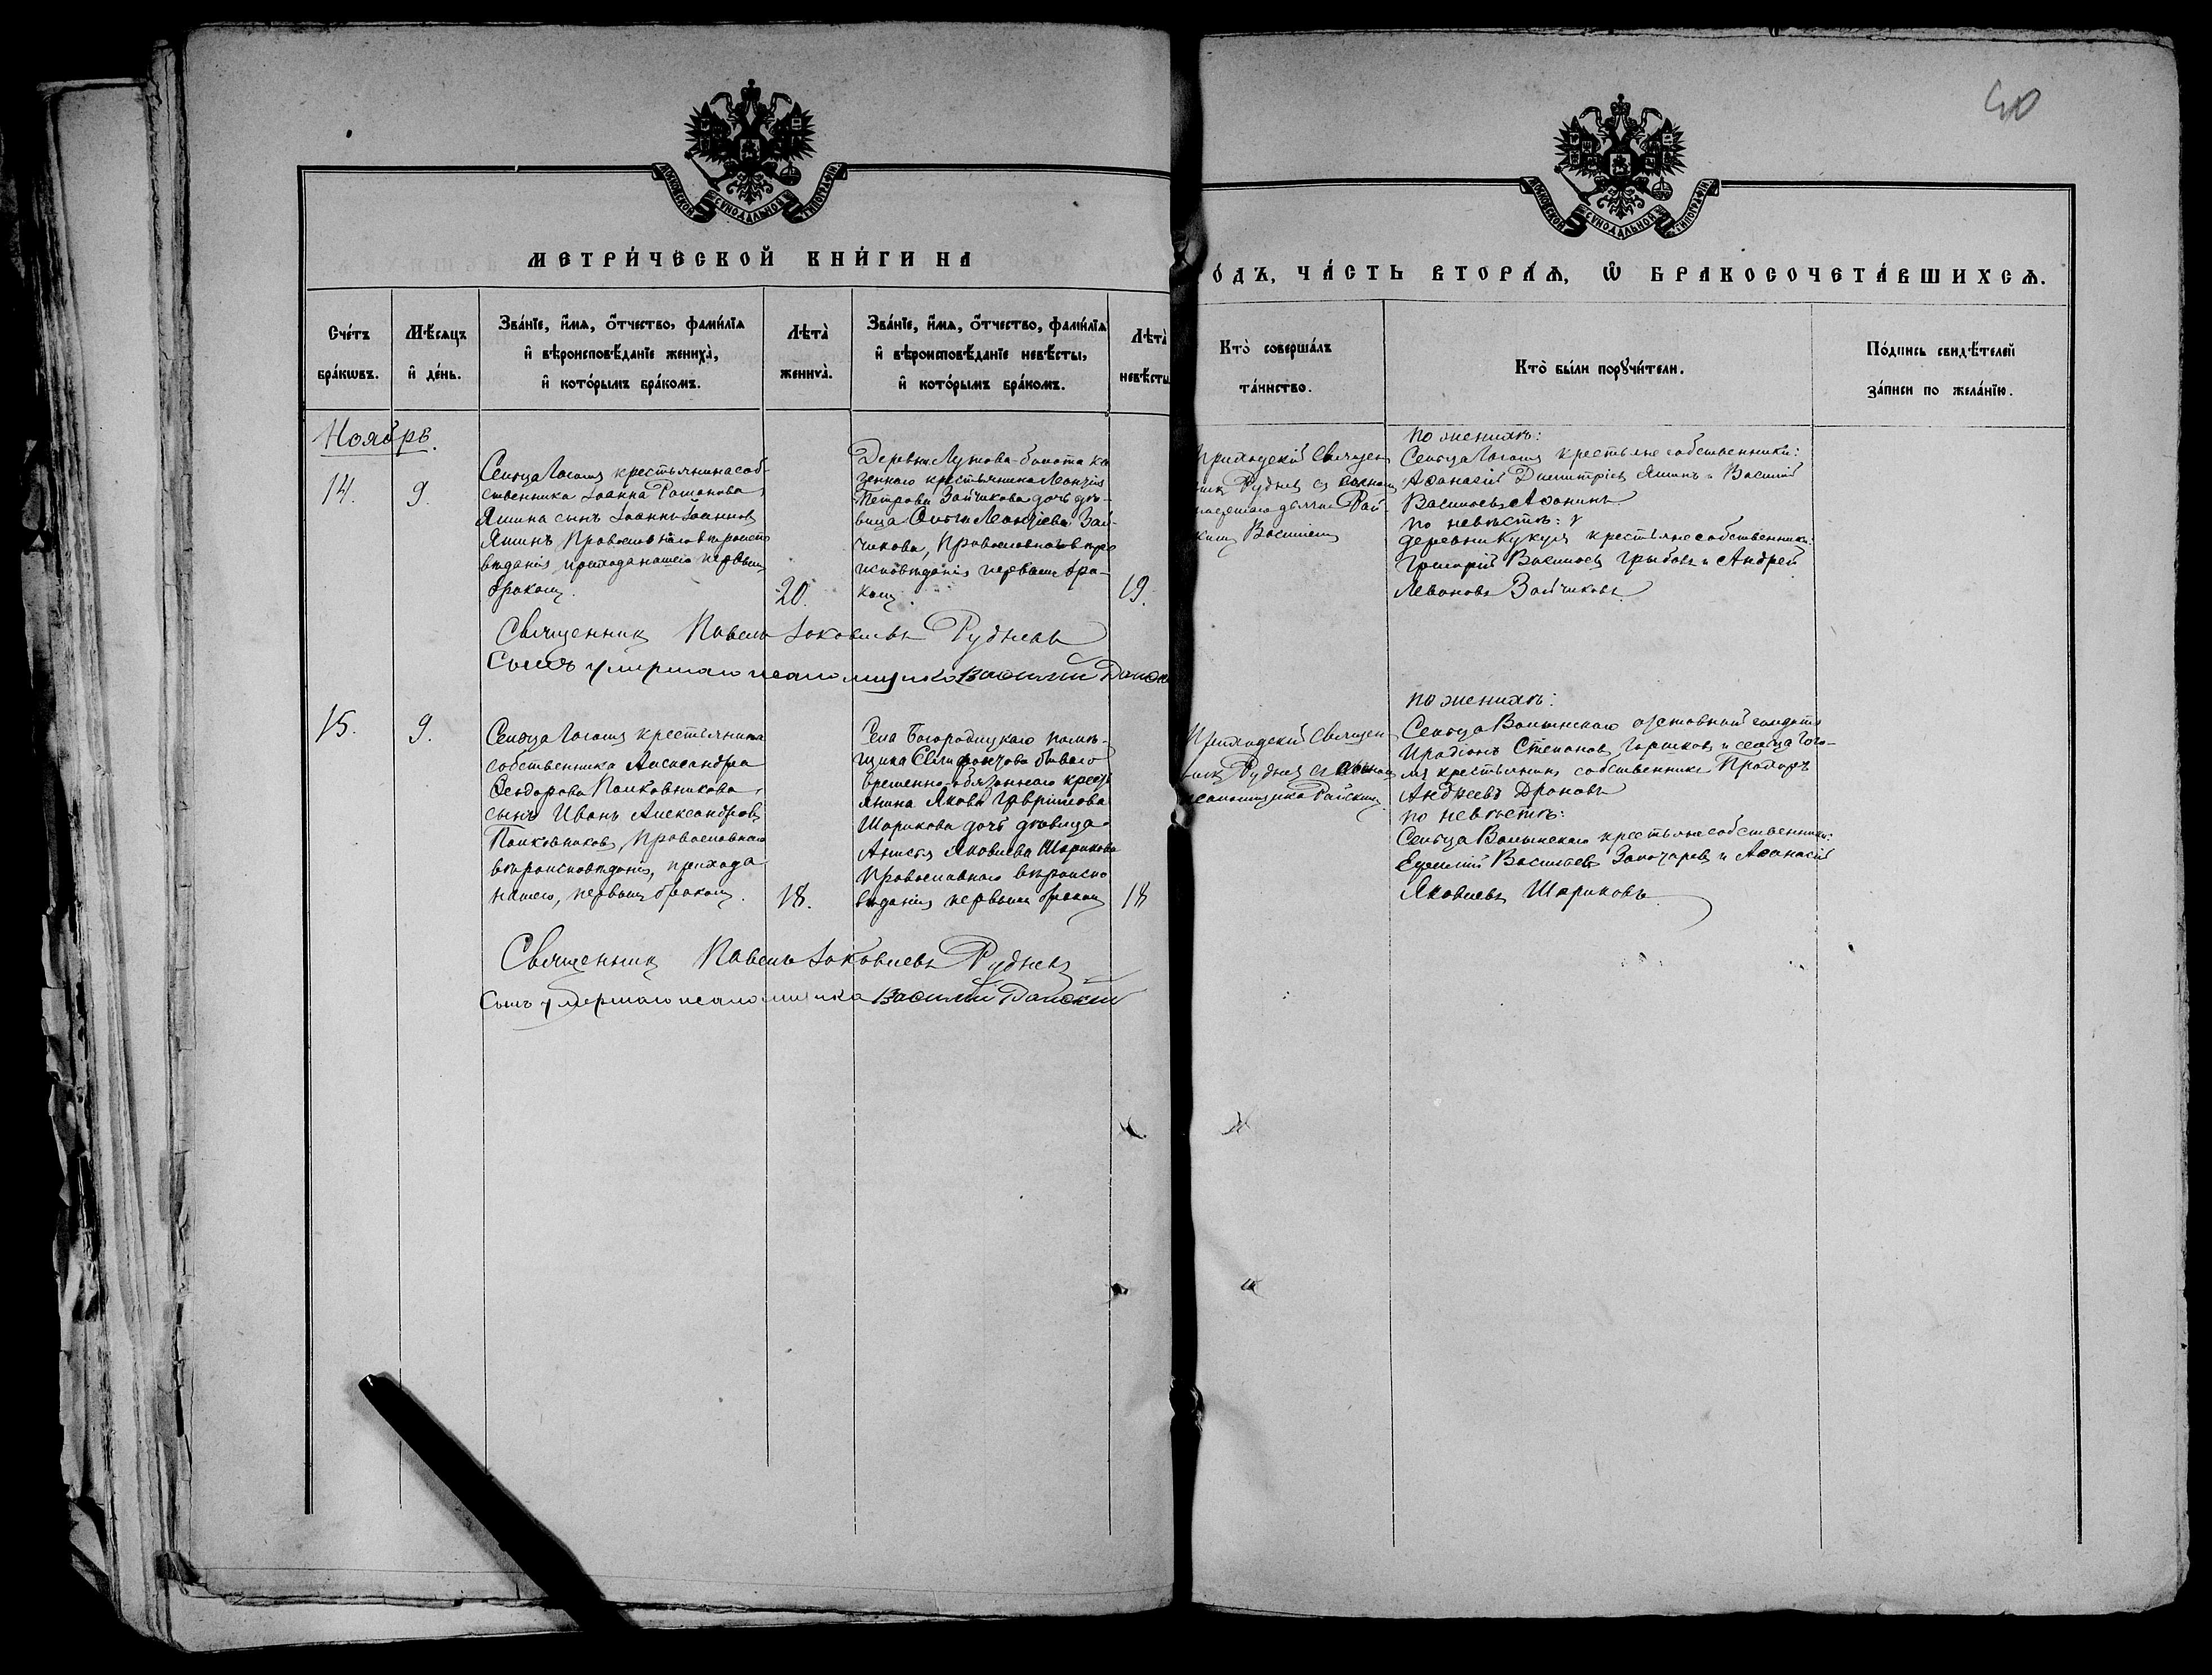 40
МОСКОВСКОЙ СѴНОДАЛЬНОЙ ТИПОГРАФІИ.
МЕТРИ́ЧЕСКОЙ КНИ́ГИ НА
МОСКОВСКОЙ СѴНОДАЛЬНОЙ ТИПОГРАФІИ.
О́ДЪ, ЧА́СТЬ ВТОРА́Ѧ, Ѡ҆ БРАКОСОЧЕТА́ВШИХСѦ.
Сче́тъ
бра́кѡвъ.
Мѣ́сѧцъ
и҆ де́нь.
Зва́нїе, и҆́мѧ, ѻ҆́тчество, фами́лїѧ
и҆ вѣроисповѣ́данїе жениха̀,
и҆ кото́рымъ бра́комъ.
Лѣта̀
жениха̀.
Зва́нїе, и҆́мѧ, ѻ҆́тчество, фами́лїѧ
и҆ вѣроисповѣ́данїе невѣ́сты,
и҆ кото́рымъ бра́комъ.
Лѣта̀
невѣ́сты
Кто̀ соверша́лъ
та́инство.
Кто̀ бы́ли порꙋчи́тели.
По́дпись свидѣ́телей
за́писи по жела́нїю.
Ноябрь.
14.
9.
Сельца Гоголя крестьянина соб-
ственника Іоанна Романова
Яшина сынъ Іоаннъ Іоанновъ
Яшинъ, Православнаго вѣроиспо
вѣданія, прихода нашего первымъ
бракомъ.
20.
Деревни Лужова-болота ка
зеннаго крестьянина Леонтія
Петрова Зайчикова дочь дѣ-
вица Леонтіева Зай-
чикова, Православнаго вѣро
исповѣданія первымъ бра-
комъ.
19.
Приходскій Священ
никъ Рудневъ съ сыномъ
Рай-
Василіемъ
по женихѣ:
Сельца Гоголя крестьяне собственники:
Аѳанасій Димитріевъ Яшинъ и Василій
Васильевъ Аѳонинъ
по невѣстѣ:
деревни Кукуя крестьяне собственники:
Григорій Васильевъ Грыбовъ и Андрей
Левоновъ Зайчиковъ
Священникъ Павелъ Іаковлевъ Рудневъ
Сынъ умершаго псаломщика Василій
15.
9.
Сельца Гоголя крестьянина
собственника Александра
Ѳеодорова Полковникова,
сынъ Иванъ Александровъ
Полковниковъ, Православнаго
вѣроисповѣданія, прихода
нашего, первымъ бракомъ.
18.
Села Богородицкаго помѣ-
щика Селифонтова бываго
временно-обязаннаго кресть
янина Якова Гаврилова
Шарикова дочь дѣвица
Яковлева Шарикова
Православнаго вѣроиспо
вѣданія первымъ бракомъ
18
Приходскій Священ
никъ Рудневъ съ сыномъ
псаломщика Райскимъ
по женихѣ:
Сельца Волынскаго отставной солдатъ
Иродіонъ Степановъ Горшковъ и сельца Гого-
ля крестьянинъ собственникъ Прохоръ
Андреевъ Дроновъ
по невѣстѣ:
Сельца Волынскаго крестьяне собственники:
Васильевъ и Аѳанасій
Яковлевъ Шариковъ
Священникъ Павелъ Іаковлевъ Рудневъ
Сынъ умершаго псаломщика Василій Райскій